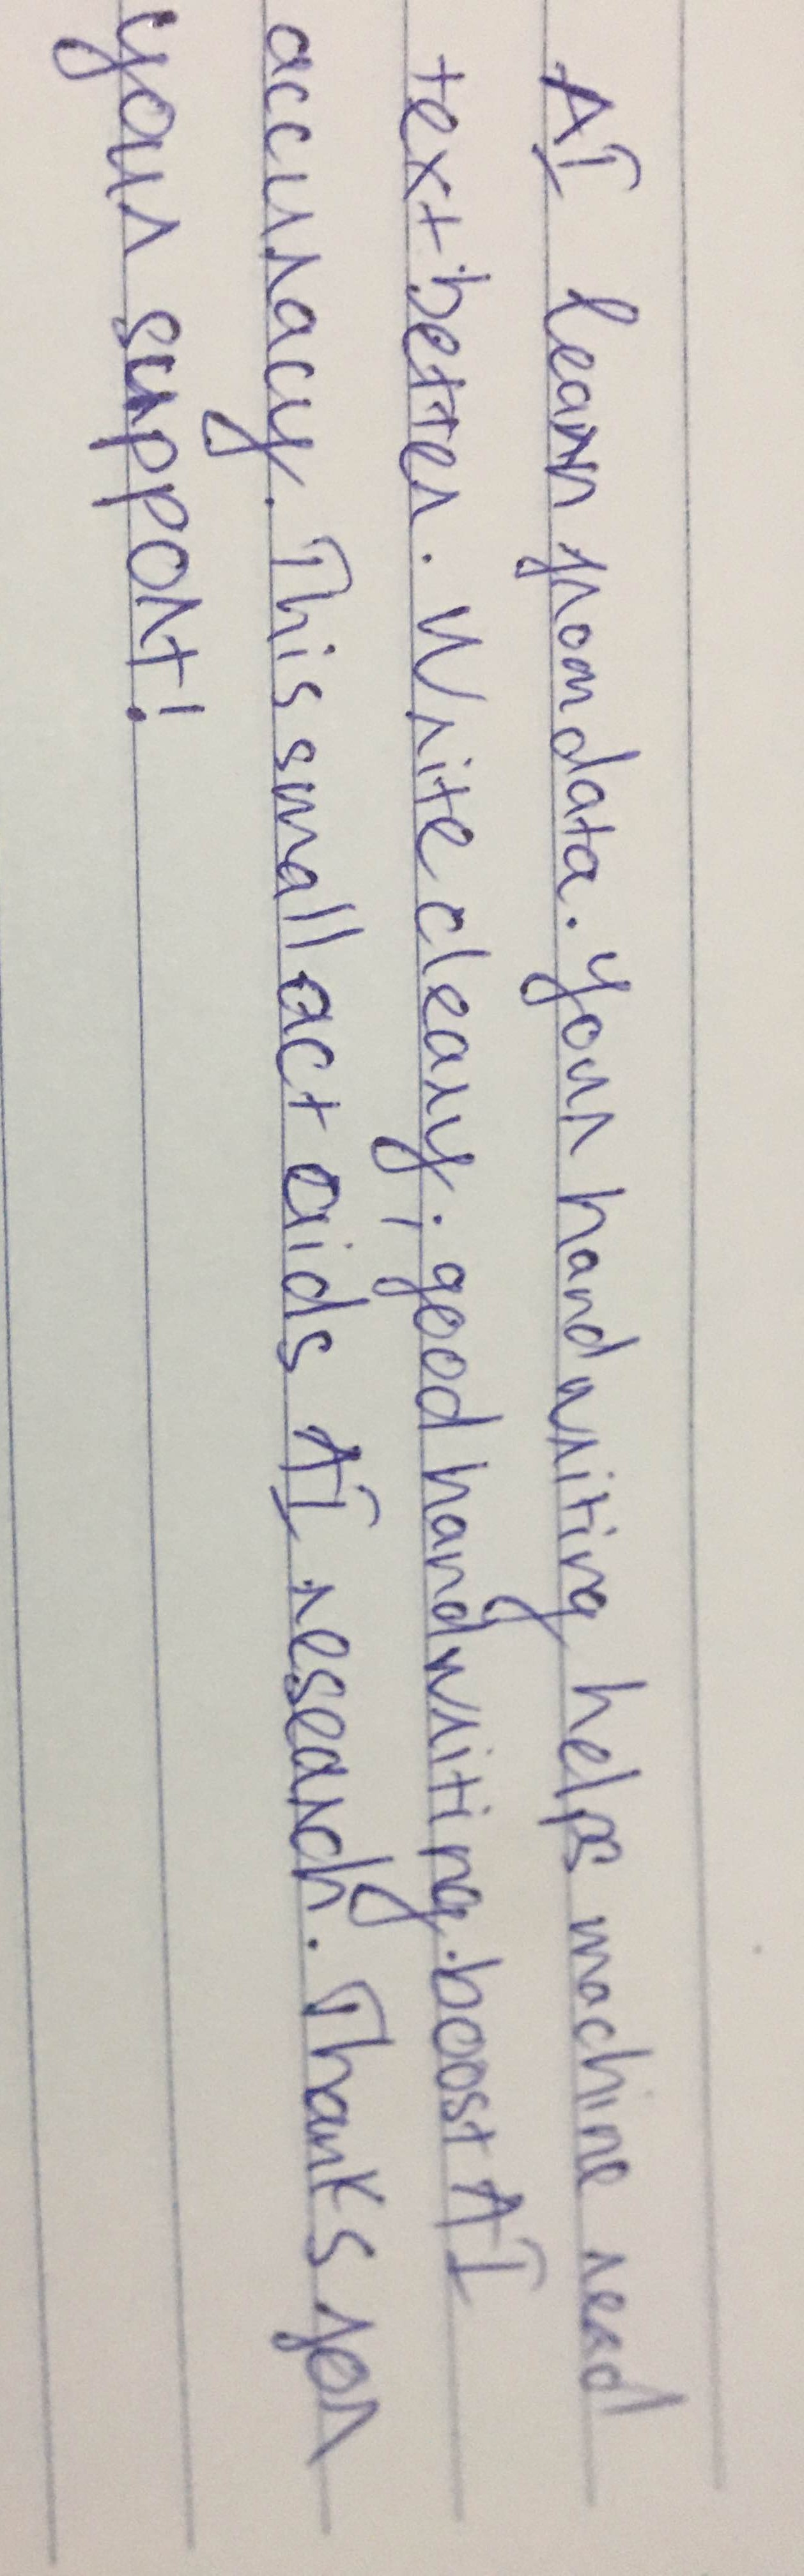 AI learn from data. Your handwriting helps machine read
text better. Write cleary; good handwriting boost AI
accuracy. This small act aids AI research. Thanks for
your support!